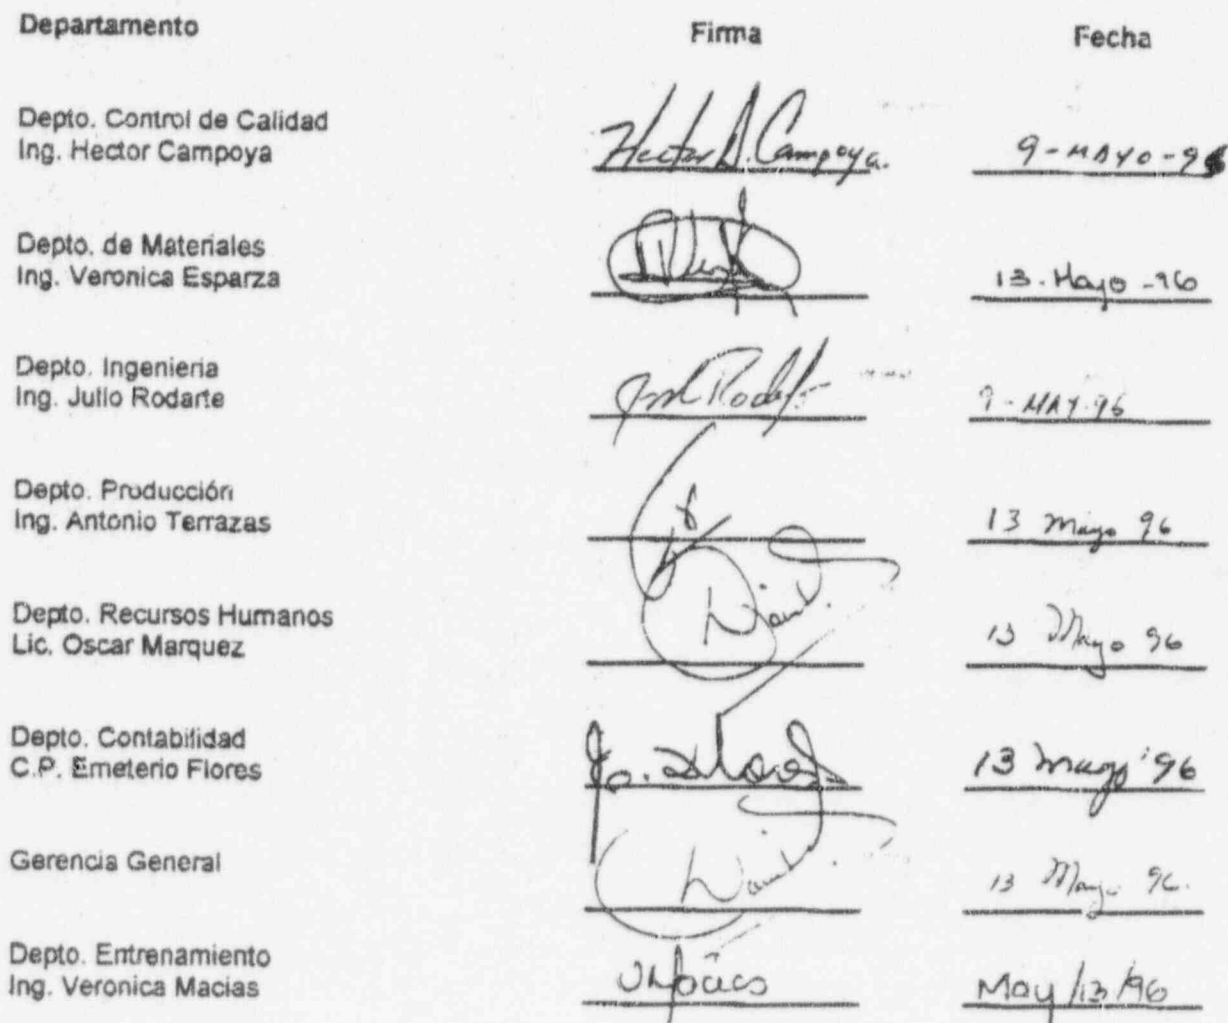 Departamento Firma Fecha
Depto. Control de Calidad
Ing. Hector Campoya Hector A. Campoya. 9-MAYO-96
Depto. de Materiales
Ing. Veronica Esparza 13-Mayo-96
Depto. Ingenieria
Ing. Julio Rodarte 9-MAY-96
Depto. Producción
Ing. Antonio Terrazas 13 Mayo 96
Depto. Recursos Humanos
Lic. Oscar Marquez 13 Mayo 96
Depto. Contabilidad
C.P. Emeterio Flores 13 Mayo '96
Gerencia General 13 Mayo 96.
Depto. Entrenamiento
Ing. Veronica Macias May/13/96